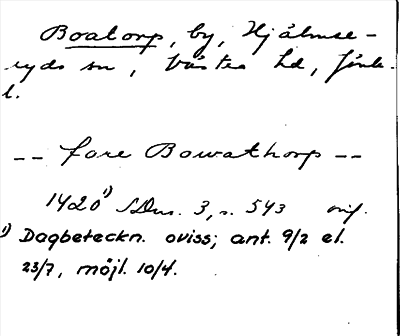 Boatorp, by, Hjälmse-
ryds sn, Västra hd, Jönk.
l.
-- fore Bowathorp --
1420 1) SDns. 3, s. 543 orig.
1) Dagbeteckn. oviss; ant. 9/2 el.
23/7, möjl. 10/4.